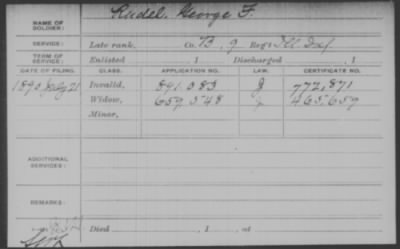 NAME OF SOLDIER: Rudel, George F.
SERVICE: Late rank, Co. B, 9 Reg't Ill Inf
TERM OF SERVICE: Enlisted , 1 Discharged , 1
DATE OF FILING. CLASS. APPLICATION NO. LAW. CERTIFICATE NO.
1890 July 21 Invalid, 891.083 J 772.871
Widow, 659.548 465.659
Minor,
ADDITIONAL SERVICES:
REMARKS:
Died , 1 , at